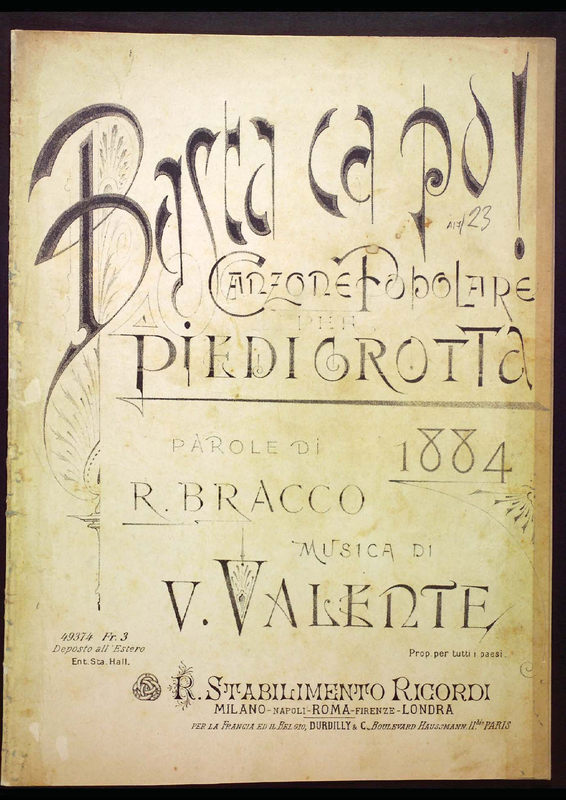 Basta ca po'!
A17/23
Canzone Popolare
PER
PIEDIGROTTA
PAROLE DI
1884
R. BRACCO
MUSICA DI
V. VALENTE
49374 Fr. 3
Deposto all'Estero
Ent. Sta. Hall.
Prop. per tutti i paesi.
R. STABILIMENTO RICORDI
MILANO-NAPOLI-ROMA-FIRENZE-LONDRA
PER LA FRANCIA ED IL BELGIO, DURDILLY & C., BOULEVARD HAUSSMANN. 11.bis PARIS